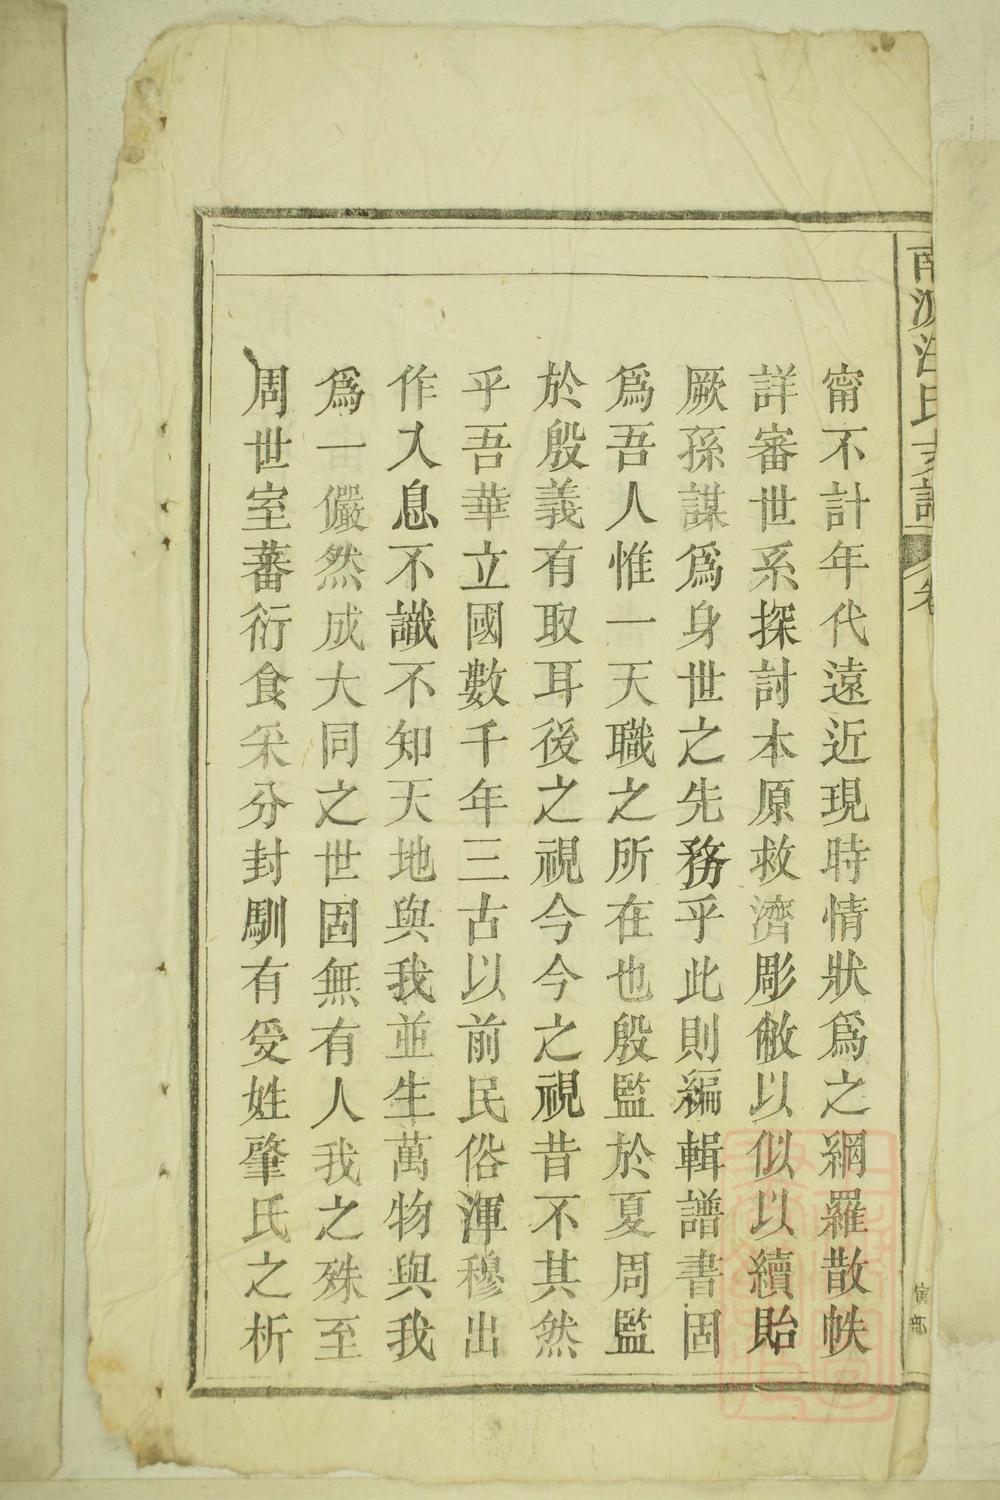 南源汪氏支譜
卷
寅部
甯不計年代遠近現時情狀爲之網羅散帙
詳審世系探討本原救濟彫敝以似以續貽
厥孫謀爲身世之先務乎此則編輯譜書固
爲吾人惟一天職之所在也殷監於夏周監
於殷義有取耳後之視今今之視昔不其然
乎吾華立國數千年三古以前民俗渾穆出
作入息不識不知天地與我並生萬物與我
爲一儼然成大同之世固無有人我之殊至
周世室蕃衍食采分封馴有受姓肇氏之析